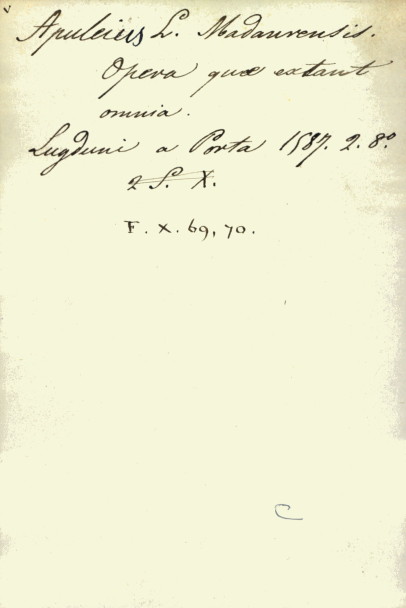 Apuleius L. Madaurensis.
Opera quæ extant
omnia.
Lugduni a Porta 1587. 2. 8º
2 S. X.
F. X. 69, 70.
C